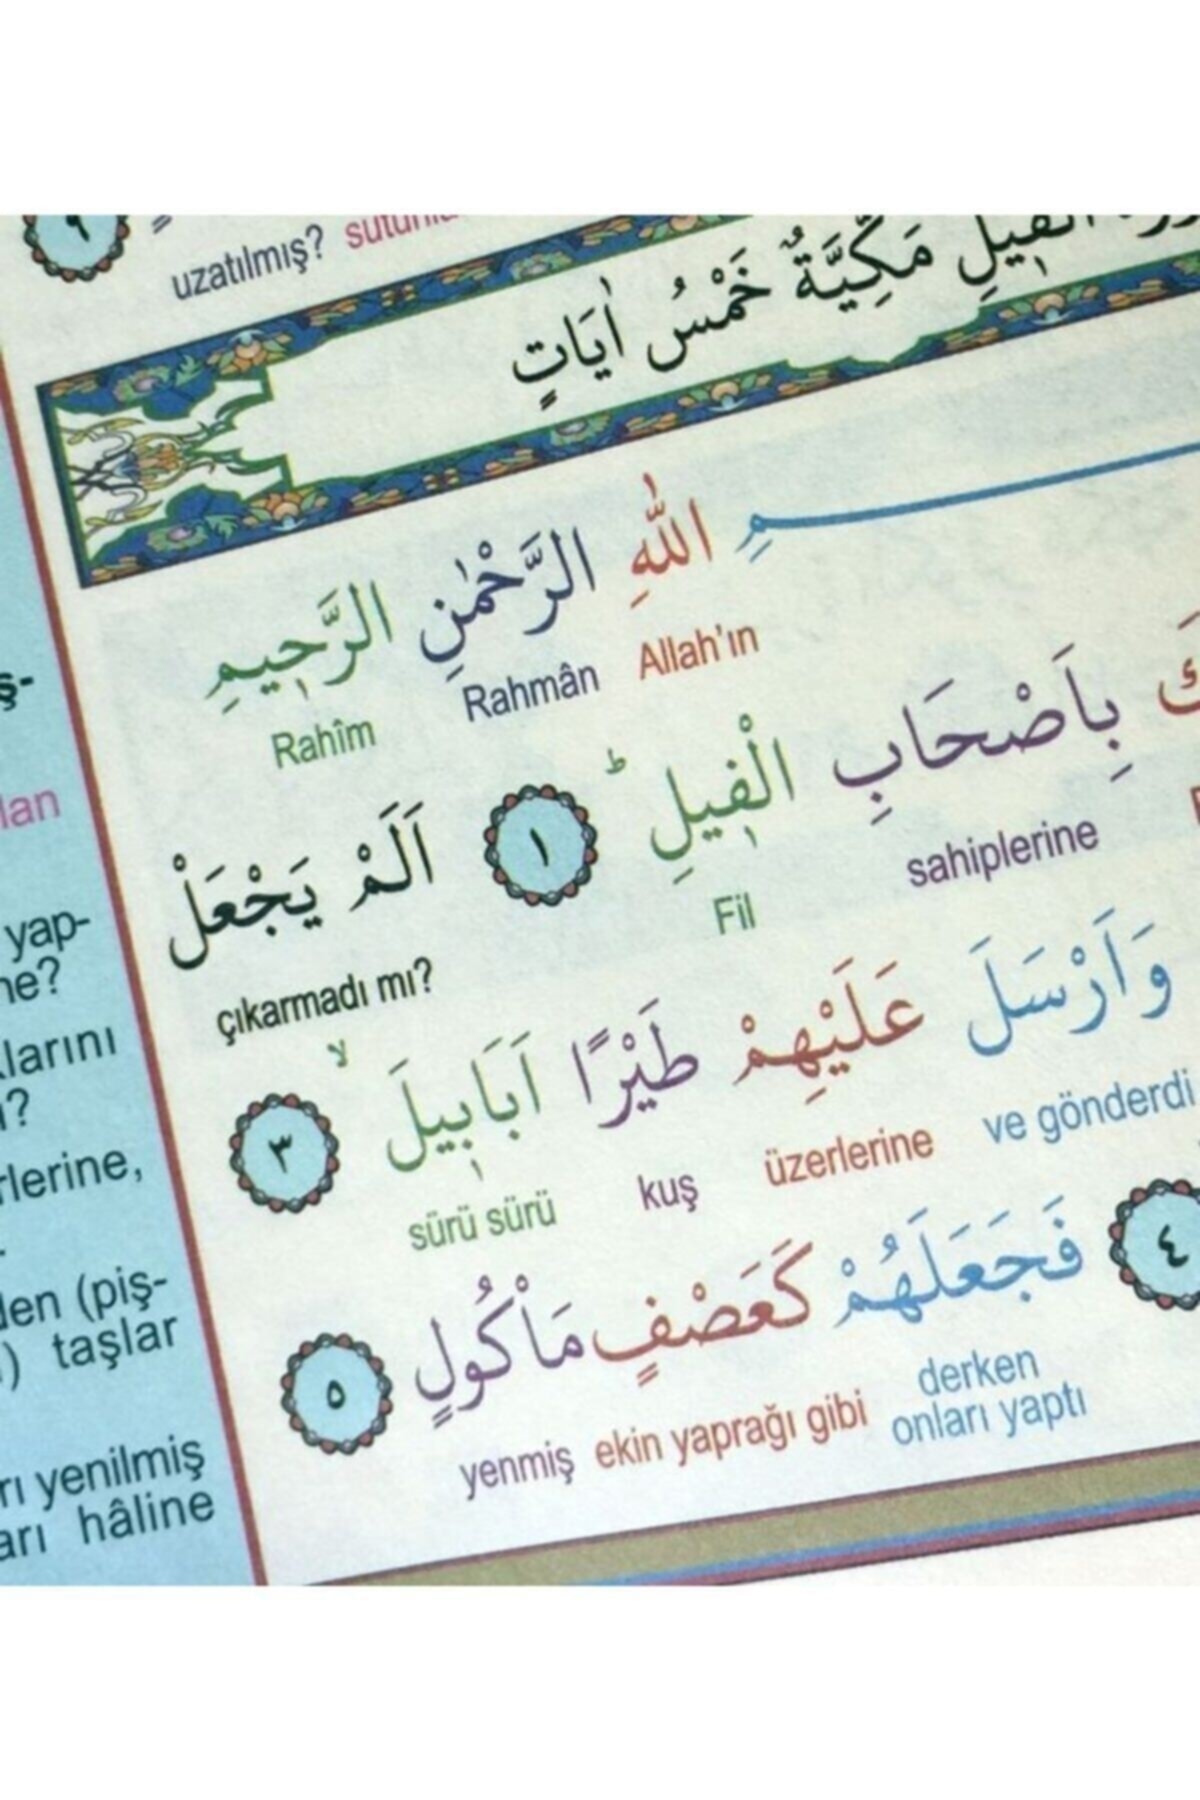 ٩
uzatılmış?
الْفٖيلِ مَكِّيَّةٌ خَمْسُ اٰيَاتٍ
اللّٰهِ الرَّحْمٰنِ الرَّحٖيمِ
Allah'ın Rahmân Rahîm
كَ بِاَصْحَابِ الْفٖيلِؕ ١ اَلَمْ يَجْعَلْ
sahiplerine Fil çıkarmadı mı?
وَاَرْسَلَ عَلَيْهِمْ طَيْرًا اَبَابٖيلَۙ ٣
ve gönderdi üzerlerine kuş sürü sürü
٤ فَجَعَلَهُمْ كَعَصْفٍ مَاْكُولٍ ٥
derken
onları yaptı ekin yaprağı gibi yenmiş
ş-
lan
yap-
ne?
larını
rlerine,
den (piş-
taşlar
yenilmiş
hâline